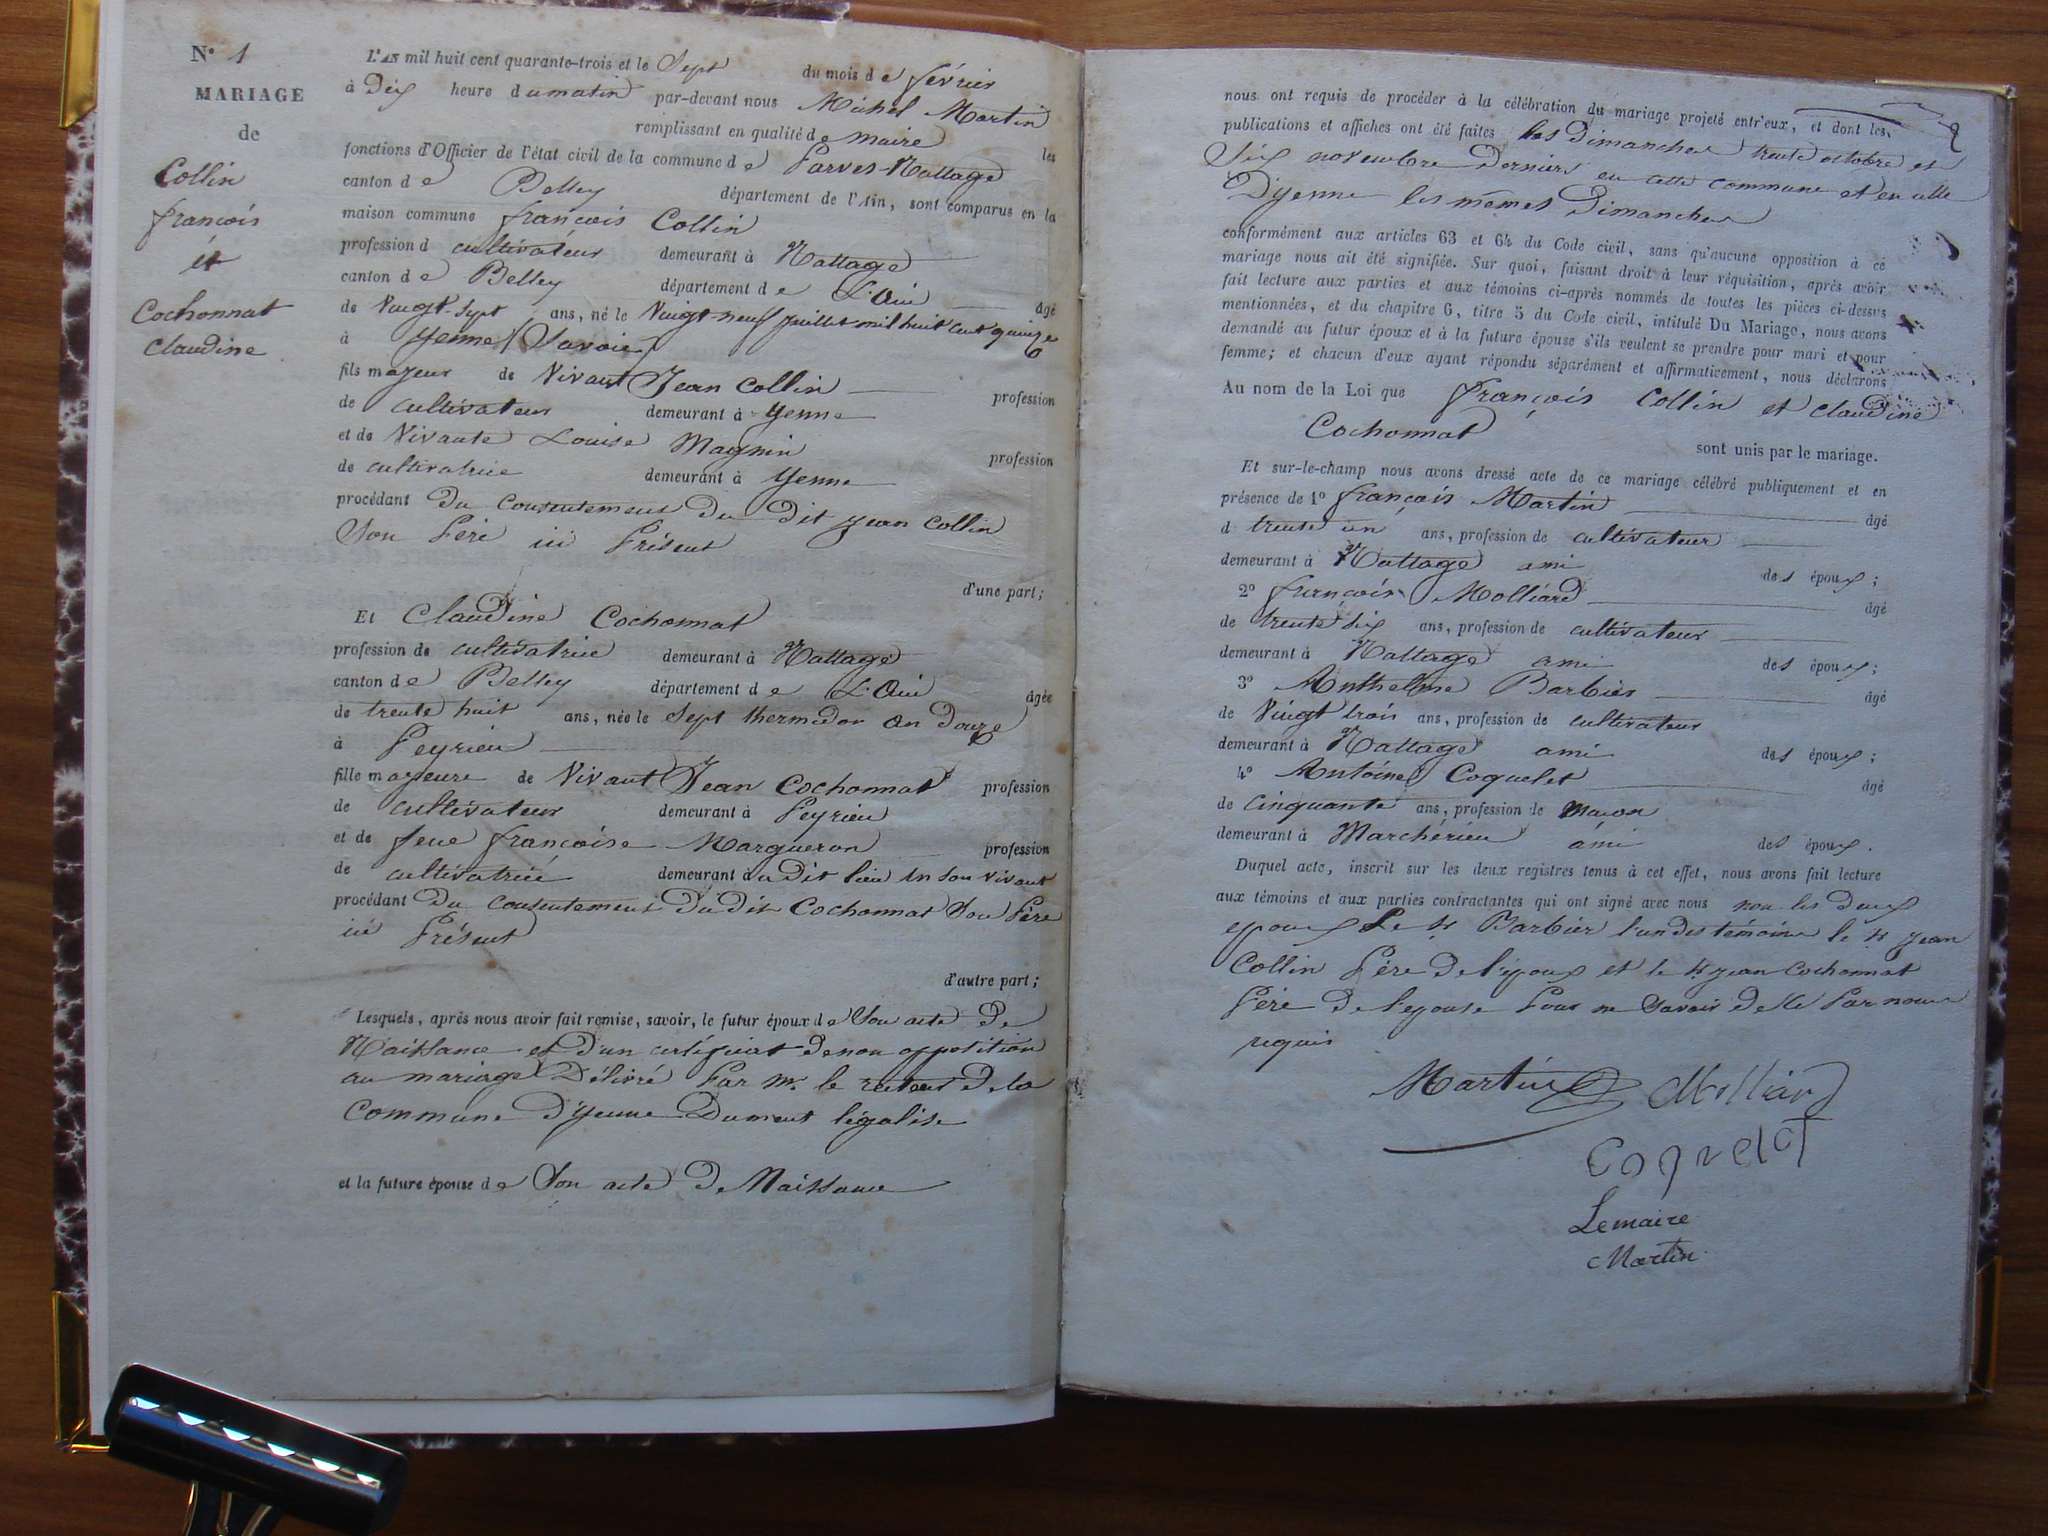 N° 1
MARIAGE
de
Collin
françois
et
Cochonnat
claudine
L'AN mil huit cent quarante-trois et le Sept du mois de février
à Dix heure du matin par-devant nous Michel Martin
remplissant en qualité de maire les
fonctions d'Officier de l'état civil de la commune de Parves-Nattage
canton de Belley département de l'Ain, sont comparus en la
maison commune françois Collin
profession d cultivateur demeurant à Nattage
canton de Belley département de L'Ain âgé
de Vingt-Sept ans, né le Vingt-neuf juillet mil huit cent quinze
à Yenne (Savoie)
fils majeur de Vivant Jean Collin profession
de cultivateur demeurant à Yenne
et de Vivante Louise Magnin profession
de cultivatrice demeurant à Yenne
procédant du consentement du dit jean Collin
Son Père ici Présent
d'une part;
Et Claudine Cochonnat
profession de cultivatrice demeurant à Nattage
canton de Belley département de L'Ain âgée
de trente huit ans, née le sept thermidor an douze
à Peyrieu
fille majeure de Vivant Jean Cochonnat profession
de cultivateur demeurant à Peyrieu
et de feue françoise Margueron profession
de cultivatrice demeurant audit lieu en son vivant
procédant du consentement dudit Cochonnat Son Père
ici Présent
d'autre part;
Lesquels, après nous avoir fait remise, savoir, le futur époux de Son acte de
Naissance et d'un certificat de non opposition
au mariage Délivré Par mr. le recteur de la
Commune d'yenne Dument légalisé
et la future épouse de Son acte de Naissance
nous ont requis de procéder à la célébration du mariage projeté entr'eux, et dont les
publications et affiches ont été faites les Dimanches trente octobre et
Six novembre derniers en cette commune et en celle
D'yenne les mêmes Dimanches
conformément aux articles 63 et 64 du Code civil, sans qu'aucune opposition à ce
mariage nous ait été signifiée. Sur quoi, faisant droit à leur réquisition, après avoir
fait lecture aux parties et aux témoins ci-après nommés de toutes les pièces ci-dessus
mentionnées, et du chapitre 6, titre 5 du Code civil, intitulé Du Mariage, nous avons
demandé au futur époux et à la future épouse s'ils veulent se prendre pour mari et pour
femme; et chacun d'eux ayant répondu séparément et affirmativement, nous déclarons
Au nom de la Loi que françois Collin et claudine
Cochonnat
sont unis par le mariage.
Et sur-le-champ nous avons dressé acte de ce mariage célébré publiquement et en
présence de 1° françois Martin âgé
d trente un ans, profession de cultivateur
demeurant à Nattage ami des époux;
2° françois Molliard âgé
de trente six ans, profession de cultivateur
demeurant à Nattage ami des époux;
3° Anthelme Barbier âgé
de Vingt trois ans, profession de cultivateur
demeurant à Nattage ami des époux;
4° Antoine Coquelet âgé
de cinquante ans, profession de macon
demeurant à Marchérieu ami des époux.
Duquel acte, inscrit sur les deux registres tenus à cet effet, nous avons fait lecture
aux témoins et aux parties contractantes qui ont signé avec nous non les deux
epoux Le sr Barbier l'un des témoins le sr jean
Collin Père de l'époux et le sr jean Cochonnat
Père de l'epouse Pour ne Savoir de ce Par nous
requis
Martin Molliard
Coquelet
Lemaire
Martin